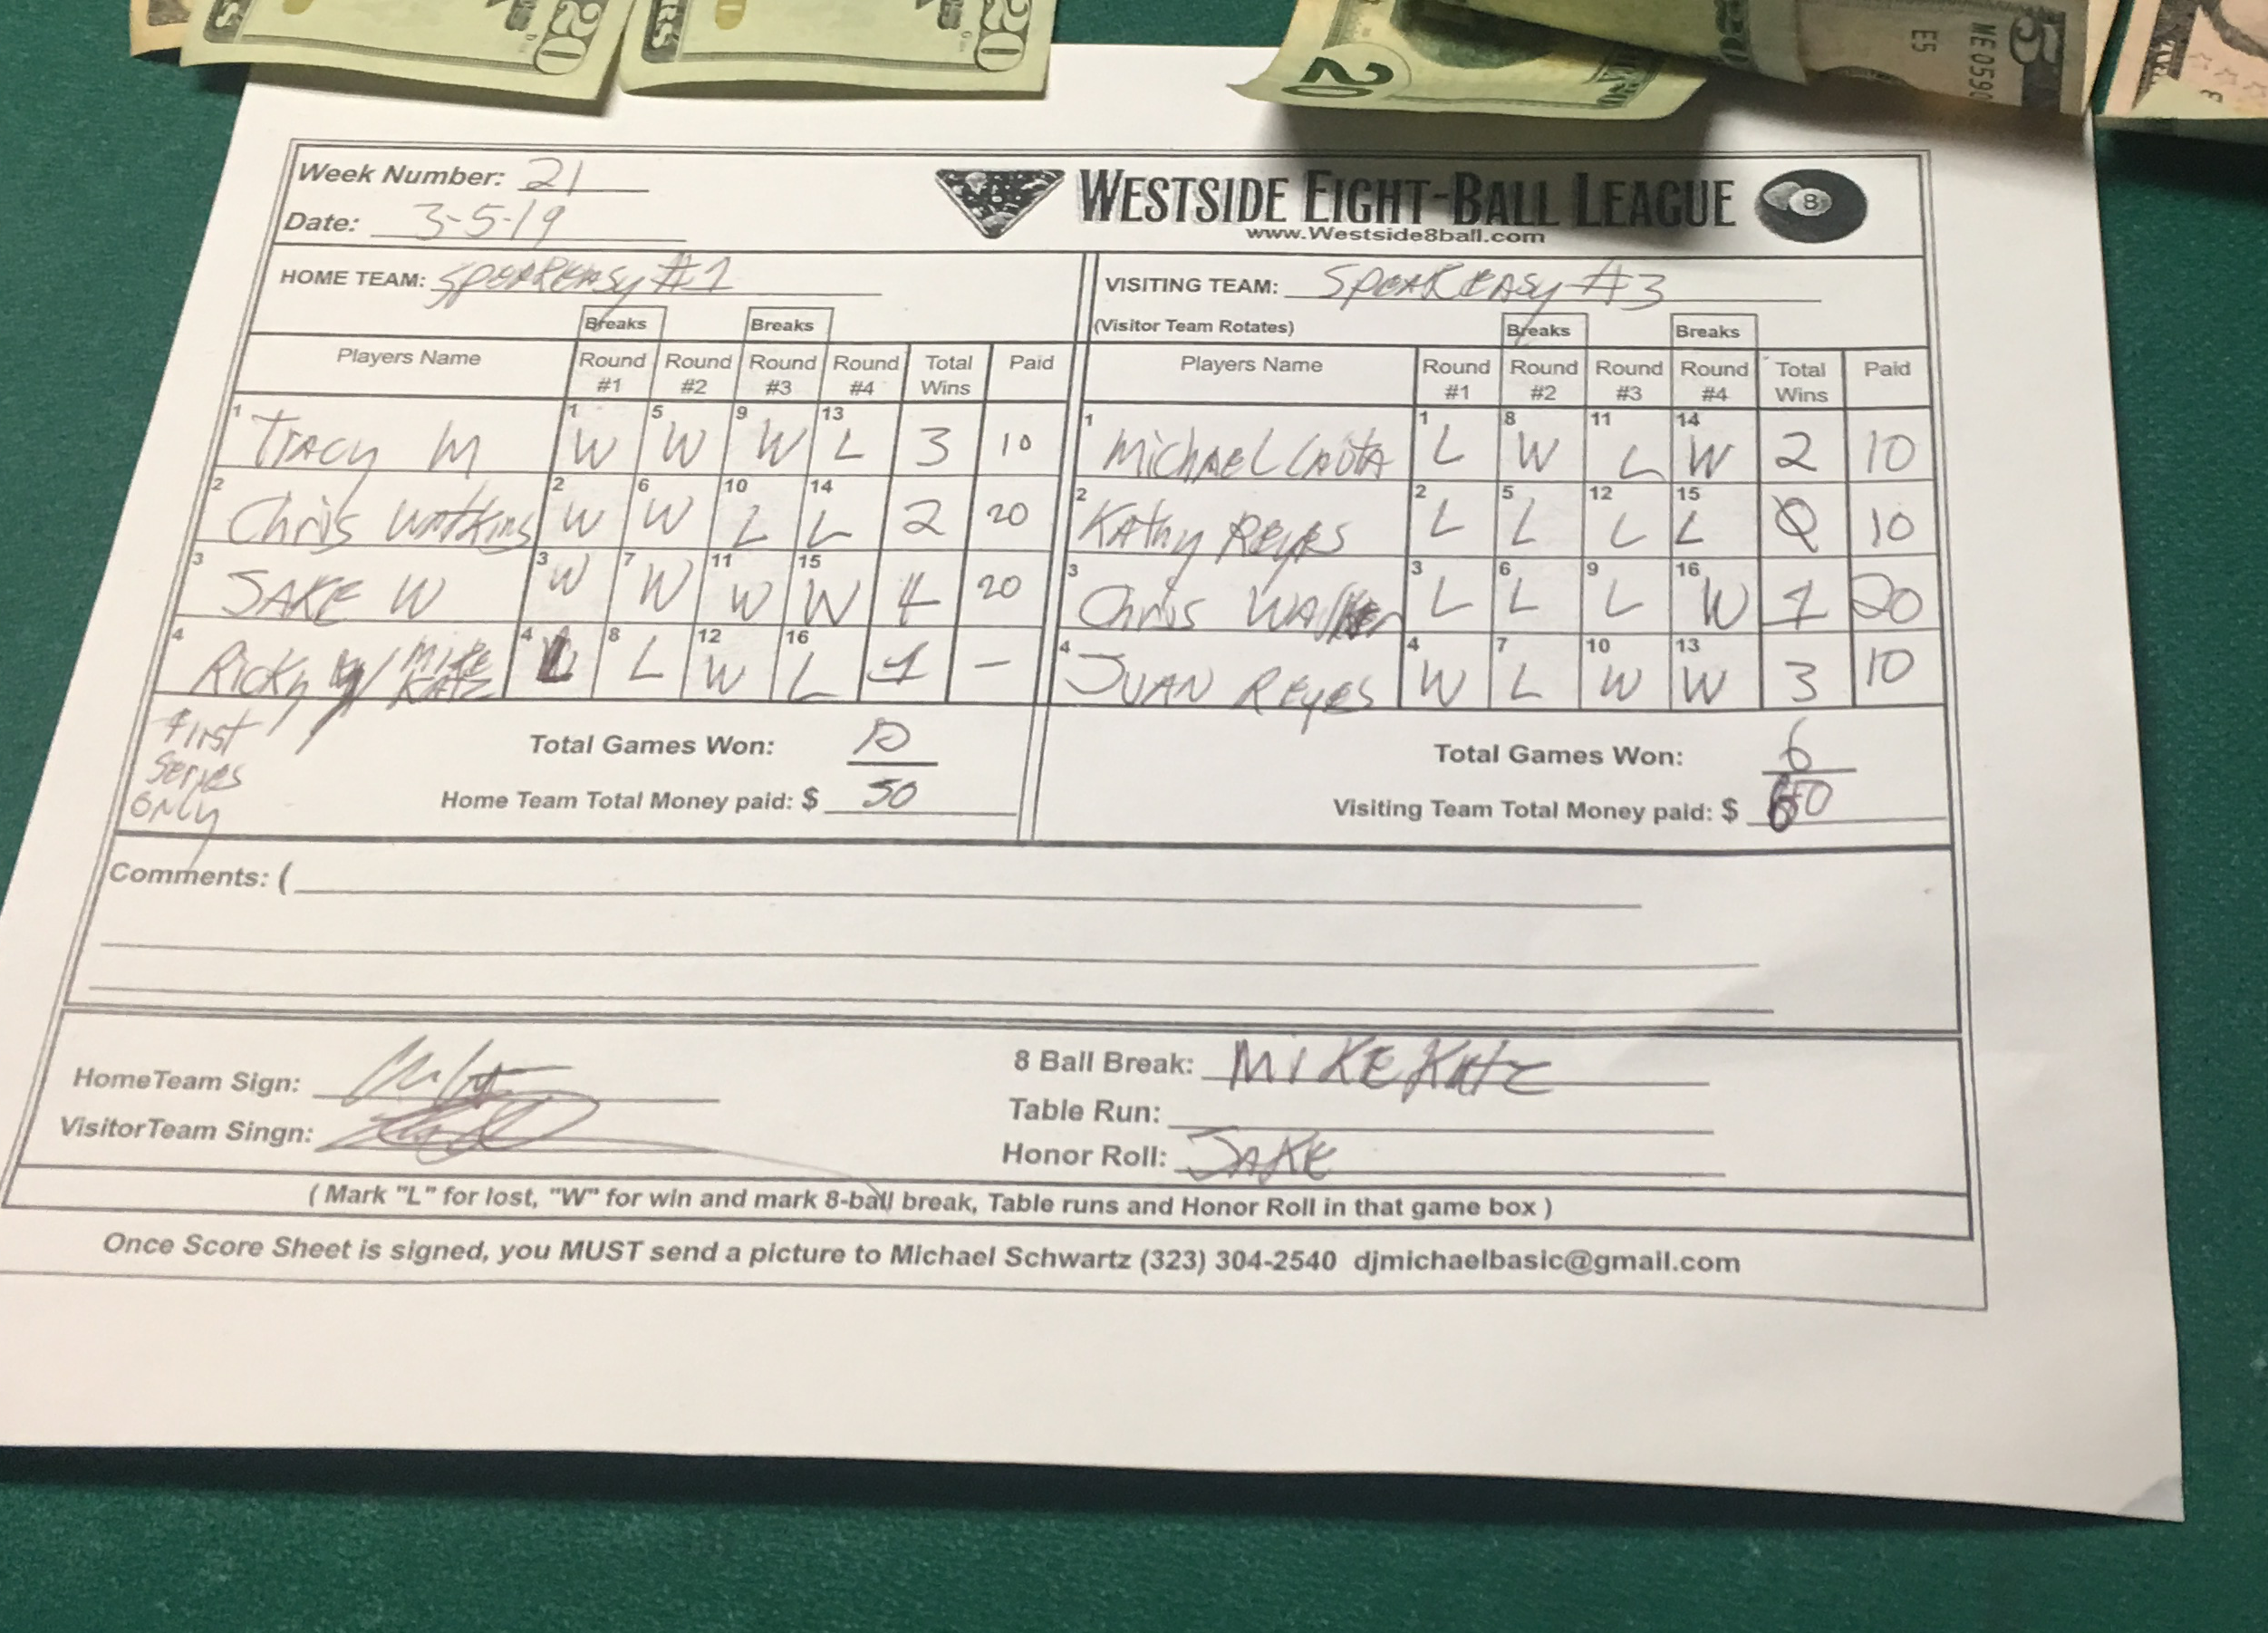 20 20 20 5
ME 0590
E5
Week Number: 21
Date: 3-5-19
WESTSIDE EIGHT-BALL LEAGUE 8
www.Westside8ball.com
HOME TEAM: SPEAKEASY #1
VISITING TEAM: SPEAKEASY #3
(Visitor Team Rotates)
Breaks Breaks Breaks Breaks
Players Name Round #1 Round #2 Round #3 Round #4 Total Wins Paid Players Name Round #1 Round #2 Round #3 Round #4 Total Wins Paid
1 TRACY M 1 W 5 W 9 W 13 L 3 10 1 MichAEL 1 L 8 W 11 L 14 W 2 10
2 Chris Watkins 2 W 6 W 10 L 14 L 2 20 2 KAthy REyES 2 L 5 L 12 L 15 L 0 10
3 JAKE W 3 W 7 W 11 W 15 W 4 20 3 Chris WALKer 3 L 6 L 9 L 16 W 1 20
4 Ricky W/ MIKE KATZ 4 L 8 L 12 W 16 L 1 – 4 JUAN REyES 4 W 7 L 10 W 13 W 3 10
First
Series
ONLY
Total Games Won: 10
Total Games Won: 6
Home Team Total Money paid: $ 50
Visiting Team Total Money paid: $ 50
Comments: (
HomeTeam Sign:
8 Ball Break: MIKE KATZ
VisitorTeam Singn:
Table Run:
Honor Roll: JAKE
( Mark "L" for lost, "W" for win and mark 8-ball break, Table runs and Honor Roll in that game box )
Once Score Sheet is signed, you MUST send a picture to Michael Schwartz (323) 304-2540 djmichaelbasic@gmail.com